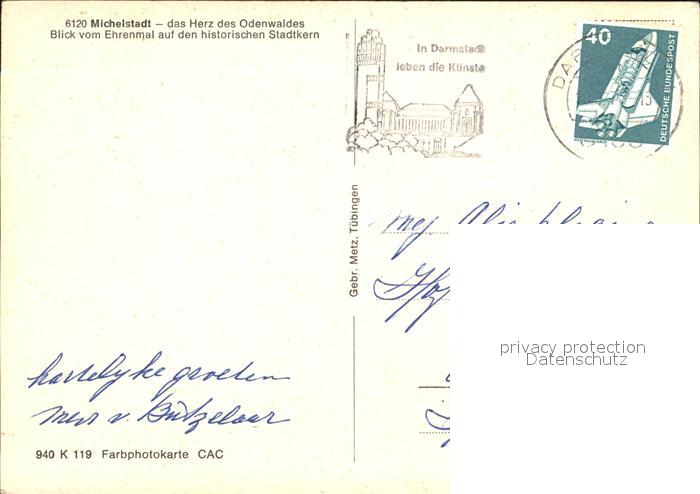 6120 Michelstadt – das Herz des Odenwaldes
Blick vom Ehrenmal auf den historischen Stadtkern
In Darmstadt
leben die Künste
40
DEUTSCHE BUNDESPOST
Gebr. Metz, Tübingen
mej.
privacy protection
Datenschutz
hartelyke groeten
mevr v. Bützelaar
940 K 119 Farbphotokarte CAC